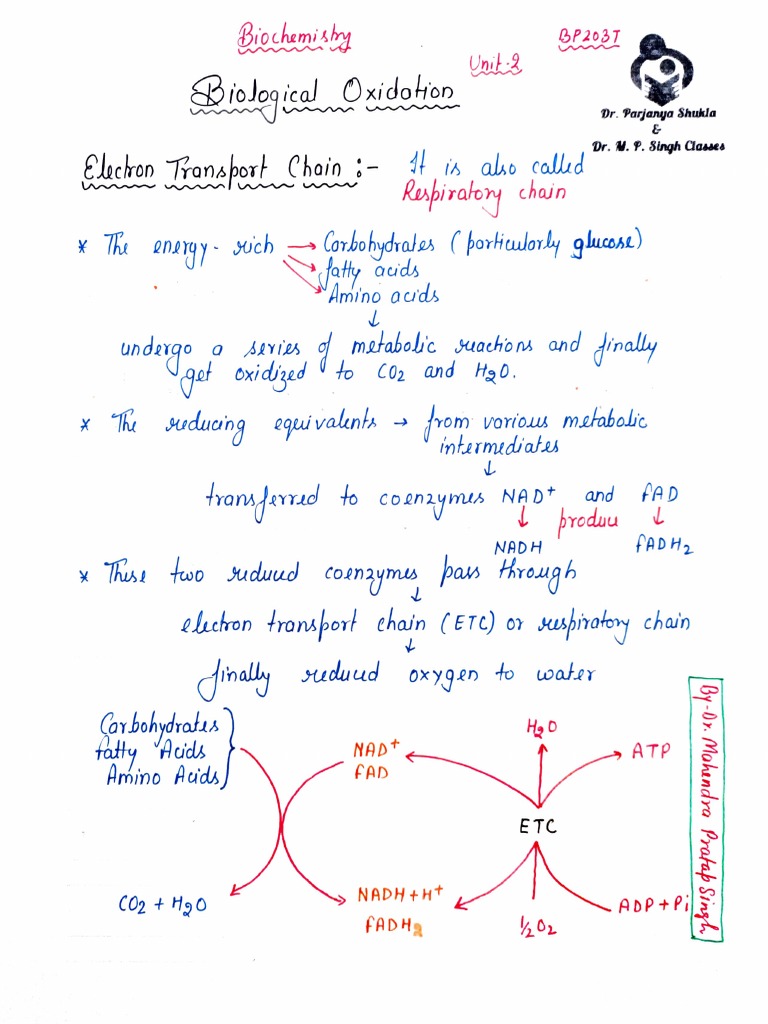 Biochemistry
BP203T
Unit-2
Biological Oxidation
Dr. Parjanya Shukla
&
Dr. M. P. Singh Classes
Electron Transport Chain :- It is also called
Respiratory chain
* The energy-rich → Carbohydrates (particularly glucose)
→ fatty acids
→ Amino acids
↓
undergo a series of metabolic reactions and finally
get oxidized to CO2 and H2O.
* The reducing equivalents → from various metabolic
intermediates
↓
transferred to coenzymes NAD+ and FAD
↓ produce ↓
NADH FADH2
* These two reduced coenzymes pass through
↓
electron transport chain (ETC) or respiratory chain
↓
finally reduced oxygen to water
Carbohydrates
Fatty Acids
Amino Acids
NAD+
FAD
H2O
ATP
ETC
CO2 + H2O
NADH + H+
FADH2
½O2
ADP + Pi
By-Dr. Mahendra Pratap Singh